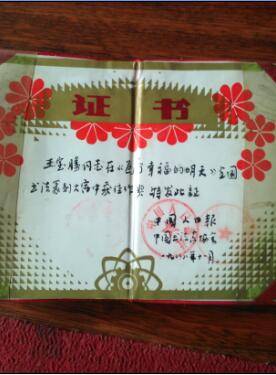 证书
王宝腾同志在《为了幸福的明天》全国
书法篆刻大赛中获佳作奖 特发此证
中国人口报
中国书法家协会
一九八八年十一月